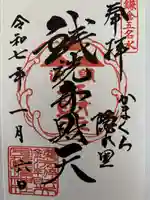 鎌倉五名水
奉拝
かまくら
隠れ里
銭洗弁財天
令和七年一月六日